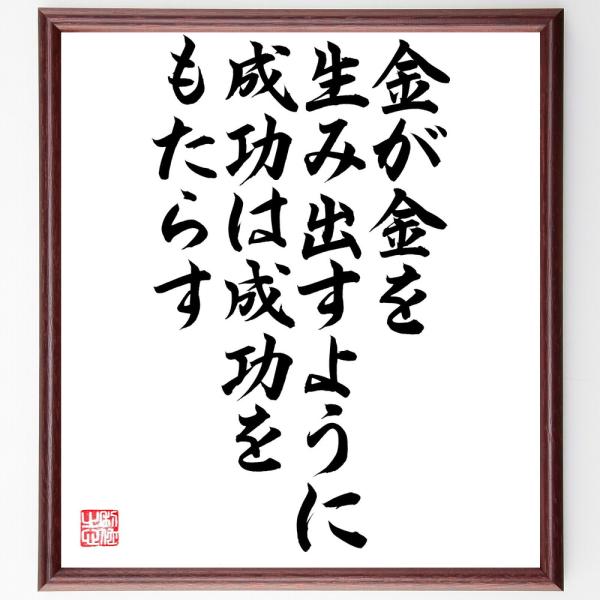 金が金を
生み出すように
成功は成功を
もたらす